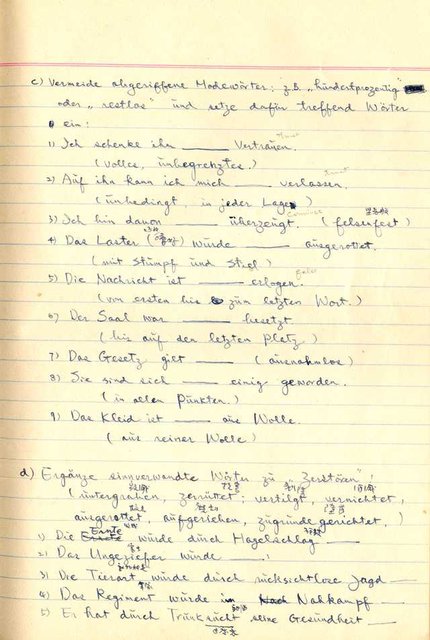 c) Vermeide abgegriffene Modewörter; z.B. „hundertprozentig"
oder „restlos" und setze dafür treffend Wörter
ein:
1) Ich schenke ihm ___ Vertrauen.
(volles, unbegrenztes.)
2) Auf ihn kann ich mich ___ verlassen.
(unbedingt, in jeder Lage)
3) Ich bin davon ___ überzeugt. (felsenfest)
4) Das Laster ( ) wurde ___ ausgerottet.
(mit Stumpf und Stiel)
5) Die Nachricht ist ___ erlogen.
(vom ersten bis zum letzten Wort.)
6) Der Saal war ___ besetzt.
(bis auf den letzten Platz)
7) Das Gesetz gilt ___ (ausnahmlos)
8) Sie sind sich ___ einig geworden.
(in allen Punkten.)
9) Das Kleid ist ___ aus Wolle.
(aus reiner Wolle)
d) Ergänze sinnverwandte Wörter zu „Zerstören"
(untergraben, zerrüttet, vertilgt, vernichtet,
ausgerottet, aufgerieben, zugrunde gerichtet.)
1) Die Ernte wurde durch Hagelschlag ___
2) Das Ungeziefer wurde ___
3) Die Tierart wurde durch rücksichtlose Jagd ___
4) Das Regiment wurde im Nahkampf ___
5) Er hat durch Trunksucht seine Gesundheit ___